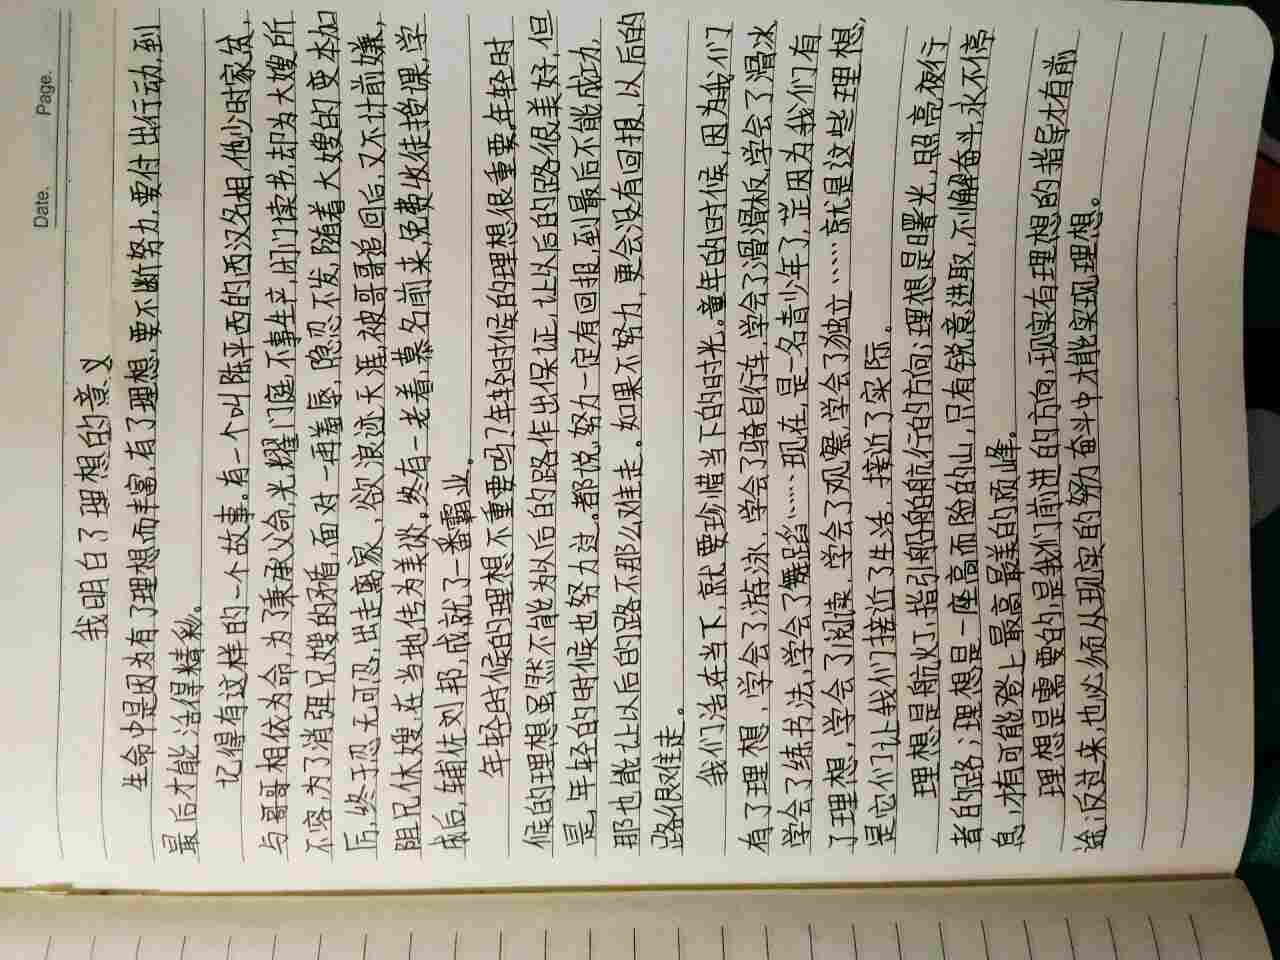 Date.      Page.
我明白了理想的意义
生命中是因为有了理想而丰富,有了理想,要不断努力,要付出行动,到
最后才能活得精彩。
记得有这样的一个故事。有一个叫陈平西的西汉名相,他少时家贫,
与哥哥相依为命,为了秉承父命,光耀门庭,不事生产,闭门读书,却为大嫂所
不容,为了消弭兄嫂的矛盾,面对一再羞辱,隐忍不发,随着大嫂的变本加
厉,终于忍无可忍,出走离家,欲浪迹天涯,被哥哥追回后,又不计前嫌,
阻兄休嫂,在当地传为美谈。终有一老着,慕名前来,免费收徒授课,学
成后,辅佐刘邦,成就了一番霸业。
年轻时候的理想不重要吗?年轻时候的理想很重要,年轻时
候的理想虽然不能为以后的路作出保证,让以后的路很美好,但
是,年轻的时候也努力过。都说努力一定有回报,到最后不能成功,
那也能让以后的路不那么难走。如果不努力,更会没有回报,以后的
路很难走。
我们活在当下,就要珍惜当下的时光。童年的时候,因为我们
有了理想,学会了游泳,学会了骑自行车,学会了滑滑板,学会了滑冰
学会了练书法,学会了舞蹈……现在,是一名青少年了,正因为我们有
了理想,学会了阅读,学会了观察,学会了独立……就是这些理想,
是它们让我们接近了生活,接近了实际。
理想是航灯,指引船舶航行的方向;理想是曙光,照亮夜行
者的路;理想是一座高而险的山,只有锐意进取,不懈奋斗,永不停
息,才有可能登上最高最美的顶峰。
理想是需要的,是我们前进的方向,现实有理想的指导才有前
途;反过来,也必须从现实的努力奋斗中才能实现理想。